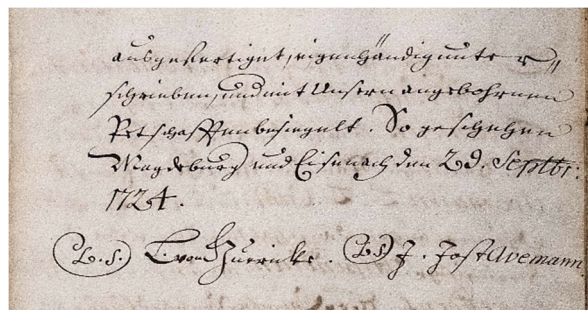 ausgefertiget, eigenhändig unter„
schrieben, und mit Unsern angebohrnen
Petschafften besiegelt. So geschehen
Magdeburg und Eisenach den 29. Septbr:
1724.
(L.S.) L. von Guericke. (LS) J. Jost Avemann